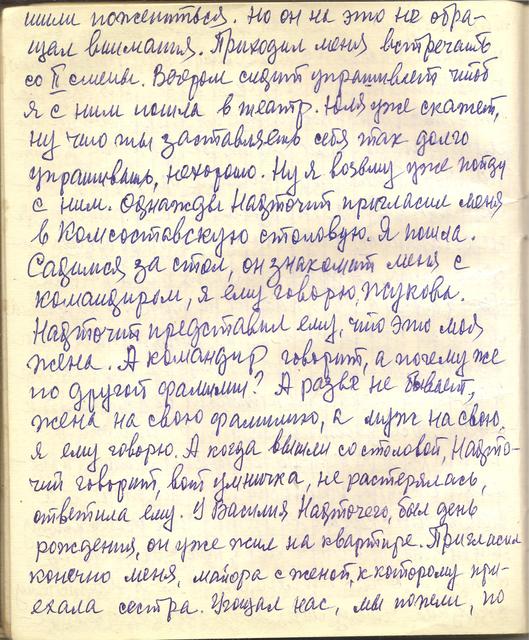 шили пожениться. Но он на это не обра-
щал внимания. Приходил меня встречать
со II смены. Вечером сидит упрашивает чтоб
я с ним пошла в театр. Юля уже скажет,
ну что ты заставляешь себя так долго
упрашивать, нехорошо. Ну я возьму уже пойду
с ним. Однажды Надточий пригласил меня
в Комсоставскую столовую. Я пошла.
Садимся за стол, он знакомит меня с
командиром, я ему говорю, Жукова.
Надточий представил ему, что это моя
жена. А командир говорит, а почему же
по другой фамилии? А разве не бывает,
жена на свою фамилию, а муж на свою,
я ему говорю. А когда вышли со столовой, Надто-
чий говорит, вот умничка, не растерялась,
ответила ему. У Василия Надточего, был день
рождения, он уже жил на квартире. Пригласил
конечно меня, майора с женой, к которому при-
ехала сестра. Угощал нас, мы попели, по